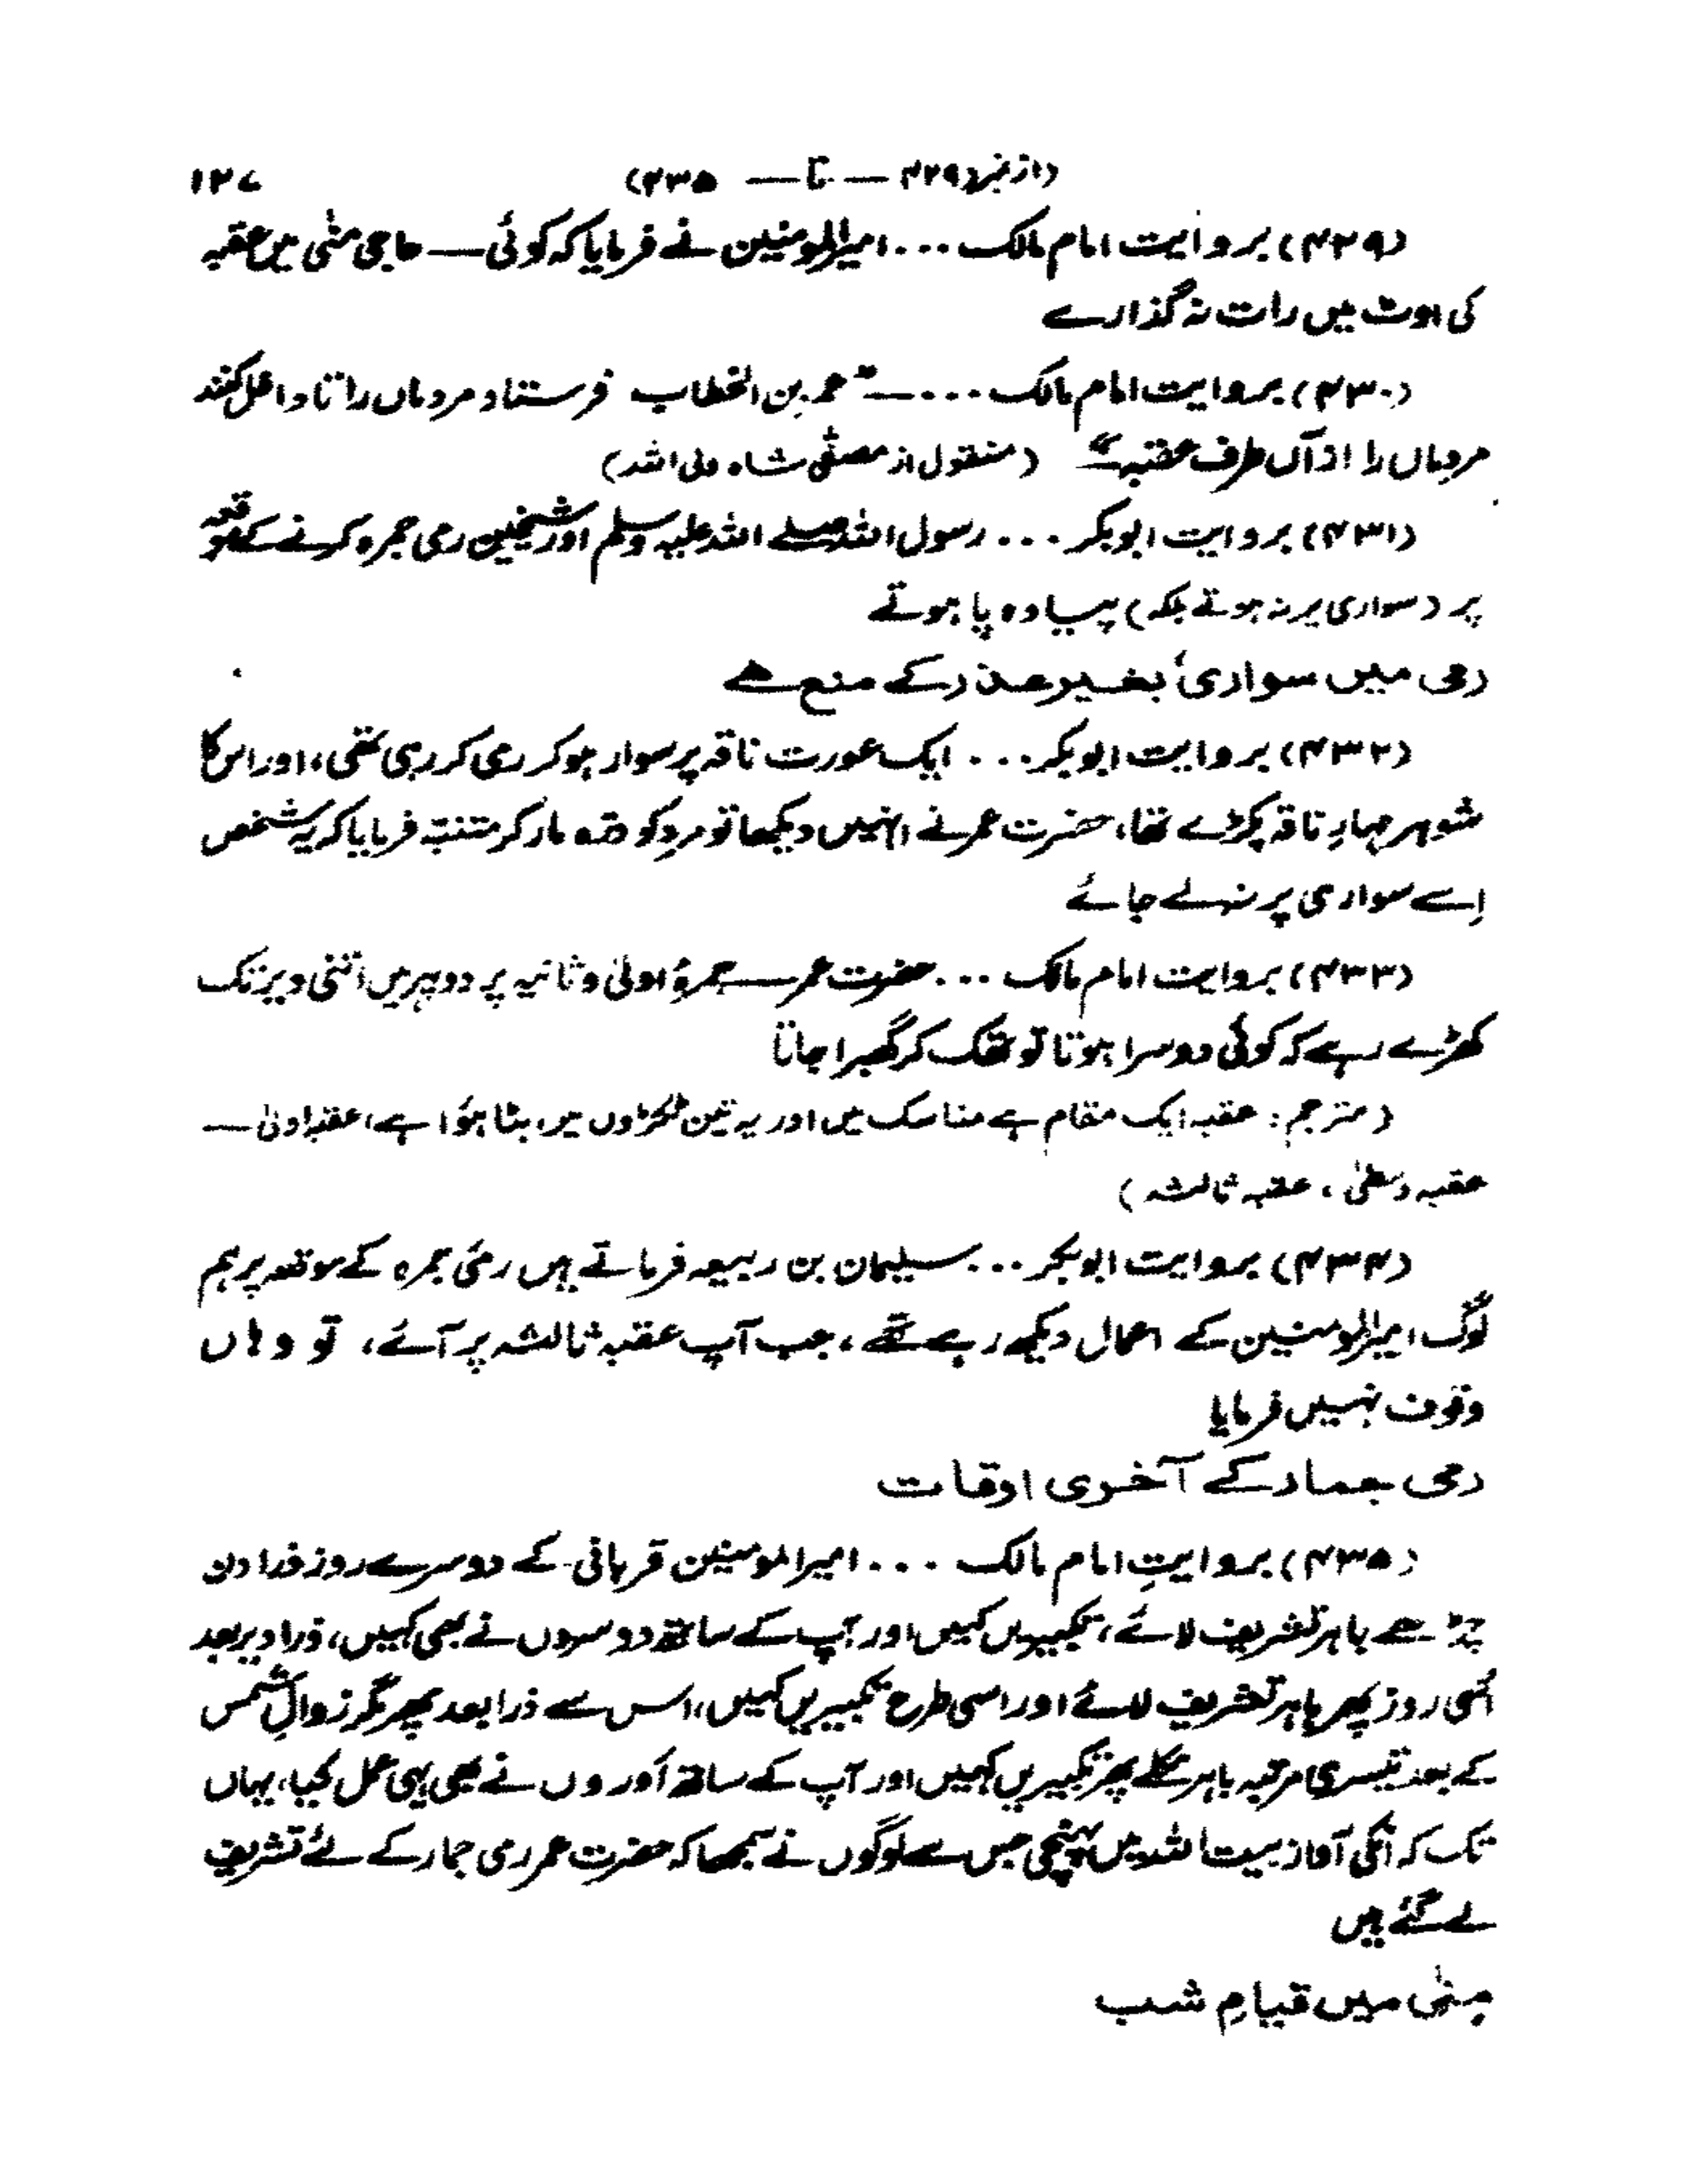 (از نمبر ۴۲۹ — تا — ۴۳۵) ۱۲۷
(۴۲۹) بروایت امام مالک ... امیرالمومنین نے فرمایا کہ کوئی — حاجی منٰی میں عقبہ
کی اوٹ میں رات نہ گذارے
(۴۳۰) بروایت امام مالک ...— "عمر بن الخطاب فرستاد مردماں را تا داخل کنند
مردماں را ازآں طرف عقبہ" (منقول از مصفّٰی شاہ ولی اللہ)
(۴۳۱) بروایت ابوبکر ... رسول اللہ صلے اللہ علیہ وسلم اور شیخین رمی جمرہ کرنے کے موقعہ
پر (سواری پر نہ ہوتے بلکہ) پیادہ پا ہوتے
رمی میں سواری بغیر عذر کے منع ہے
(۴۳۲) بروایت ابوبکر ... ایک عورت ناقہ پر سوار ہو کر رمی کر رہی تھی، اور اس کا
شوہر مہارِ ناقہ پکڑے تھا، حضرت عمر نے انہیں دیکھا تو مرد کو درّہ مار کر متنبّہ فرمایا کہ یہ شخص
اِسے سواری پر نہ لے جائے
(۴۳۳) بروایت امام مالک ... حضرت عمر — جمرۂ اولیٰ و ثانیہ پر دوپہر میں اتنی دیر تک
کھڑے رہے کہ کوئی دوسرا ہوتا تو تھک کر گھبرا جاتا
(مترجم : عقبہ ایک مقام ہے مناسک میں اور یہ تین ٹکڑوں میں بٹا ہوٗا ہے، عقبہ اولیٰ —
عقبہ وسطیٰ، عقبہ ثالثہ)
(۴۳۴) بروایت ابوبکر ... سلیمان بن ربیعہ فرماتے ہیں رمئی جمرہ کے موقعہ پر ہم
لوگ امیرالمومنین کے اعمال دیکھ رہے تھے، جب آپ عقبہ ثالثہ پر آئے، تو وہاں
وقوف نہیں فرمایا
رمی جمار کے آخری اوقات
(۴۳۵) بروایتِ امام مالک ... امیرالمومنین قربانی کے دوسرے روز ذرا دن
چڑھے باہر تشریف لائے، تکبیریں کہیں اور آپ کے ساتھ دوسروں نے بھی کہیں، ذرا دیر بعد
اُسی روز پھر باہر تشریف لائے اور اسی طرح تکبیریں کہیں، اس سے ذرا بعد پھر مگر زوالِ شمس
کے بعد تیسری مرتبہ باہر نکلے پھر تکبیریں کہیں اور آپ کے ساتھ اَوروں نے بھی یہی عمل کیا، یہاں
تک کہ انکی آواز بیت اللہ میں پہنچی جس سے لوگوں نے سمجھا کہ حضرت عمر رمی جمار کے لئے تشریف
لے گئے ہیں
مِنٰی میں قیامِ شب